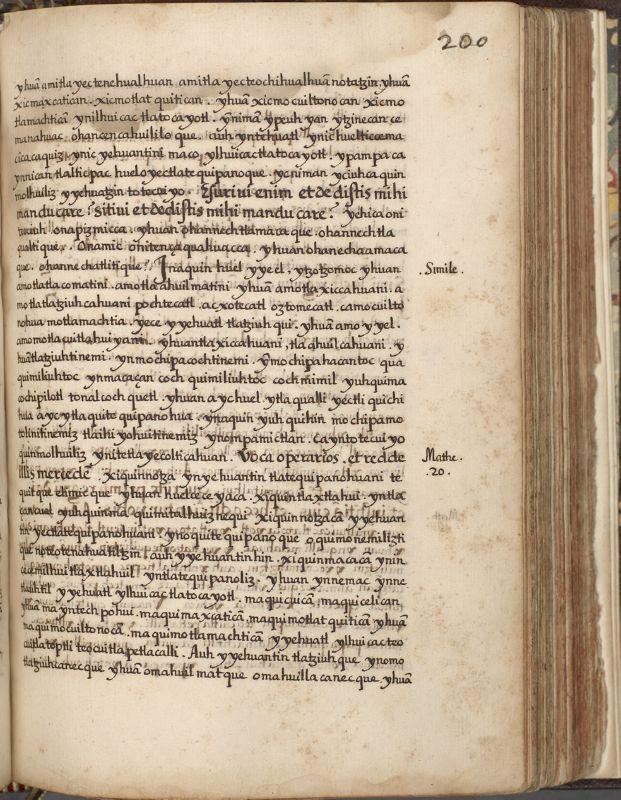 200
yhuā amitla yectenehualhuan, amitla yecteochihualhuā notatzin, yhuā
xicmaxcatican. xicmotlat quitican. yhuā xicmo cuiltono can xicmo
tlamachticā ynilhui cac tlatoca yotl. ynimā ypeuh yan ytzinecan ce
manahuac, ohancencahuililo que. auh yntehuatl ynic huel ticcema
cica caquiz, ynic yehuantini maco, ylhuicac tlatoca yotl. ypampa ca
ynnican tlalticpac huelo yectlate quipano que. yc niman yciuhca quin
molhuiliz yyehuatzin totecui yo. Esurivi enim et dedistis mihi
manducare? sitivi et dedistis mihi manducare? ychica oni
onapizmicca, yhuan ohannechtlamaca que. ohannechtla
qualti que. Onamic onitença qualhuacca, yhuan ohanechaamaca
que. ohannechatliti que? Inaquin huel yyeel, ytzotzomoc yhuan
amotlatlacomatini. amotlaxahuilmatini yhuā amotlaxiccahuani. a
motlatlatziuhcahuani pochtecatl. acxotecatl oztomecatl. camo cuilto
nohua motlamachtia. yece yyehuatl tlatziuh qui. yhuā amo yyel.
amomotlacuitlahuiyani. yhuantlaxiccahuani, tlaçihuilcahuani. y
huā tlatziuhtinemi. ynmochipacochtinemi. ymochipahacantoc qua
quimiliuhtoc ynmaçaçan coch quimiliuhtoc cochmimil yuhquima
cochipilotl tonalcoch quetl. yhuan aychuel. ytla qualli yectli quichi
hua ayc ytlaquite quipanohua. ynaquin yuh quihin mochipamo
tolinitinemiz tlaihi yohuitinemiz ynompa mictlan. Ca yn totecui yo
quinmolhuiliz ynitetlayecolticahuan. Voca operarios. et redde
illis mercedē. xiquinnotza ynyehuantin tlatequipanohuani te
yhuan huelcece yaca. xiquintlaxtlahui. yntlex
yuh quinma quimitalhuiznequi xiquinnotzaca yyehuan
tin yectlatequipanohuani. yno quitequipano que
que noteotenahuatiltzin? auh yyehuantin hin. xiquinmacaca ynin
cecemilhuitlaxtlahuil yntlatequipanoliz. yhuan ynnemac ynne
mauhtil yyehuatl ylhuicac tlatoca yotl. maquicuicā, maquicelican,
yhuā mayntech pohui. maquimaxcaticā. maquimotlatquiticā yhuā
maquimocuiltonocā. maquimotlamachticā yyehuatl ylhuicac teo
cuitlatoptli teocuitla petlacalli. Auh yyehuantin tlatziuhque ynomo
tlatziuhcanecque yhuā omahuilmatque omahuilla canecque, yhuā
.Simile.
Mathe.
.20.